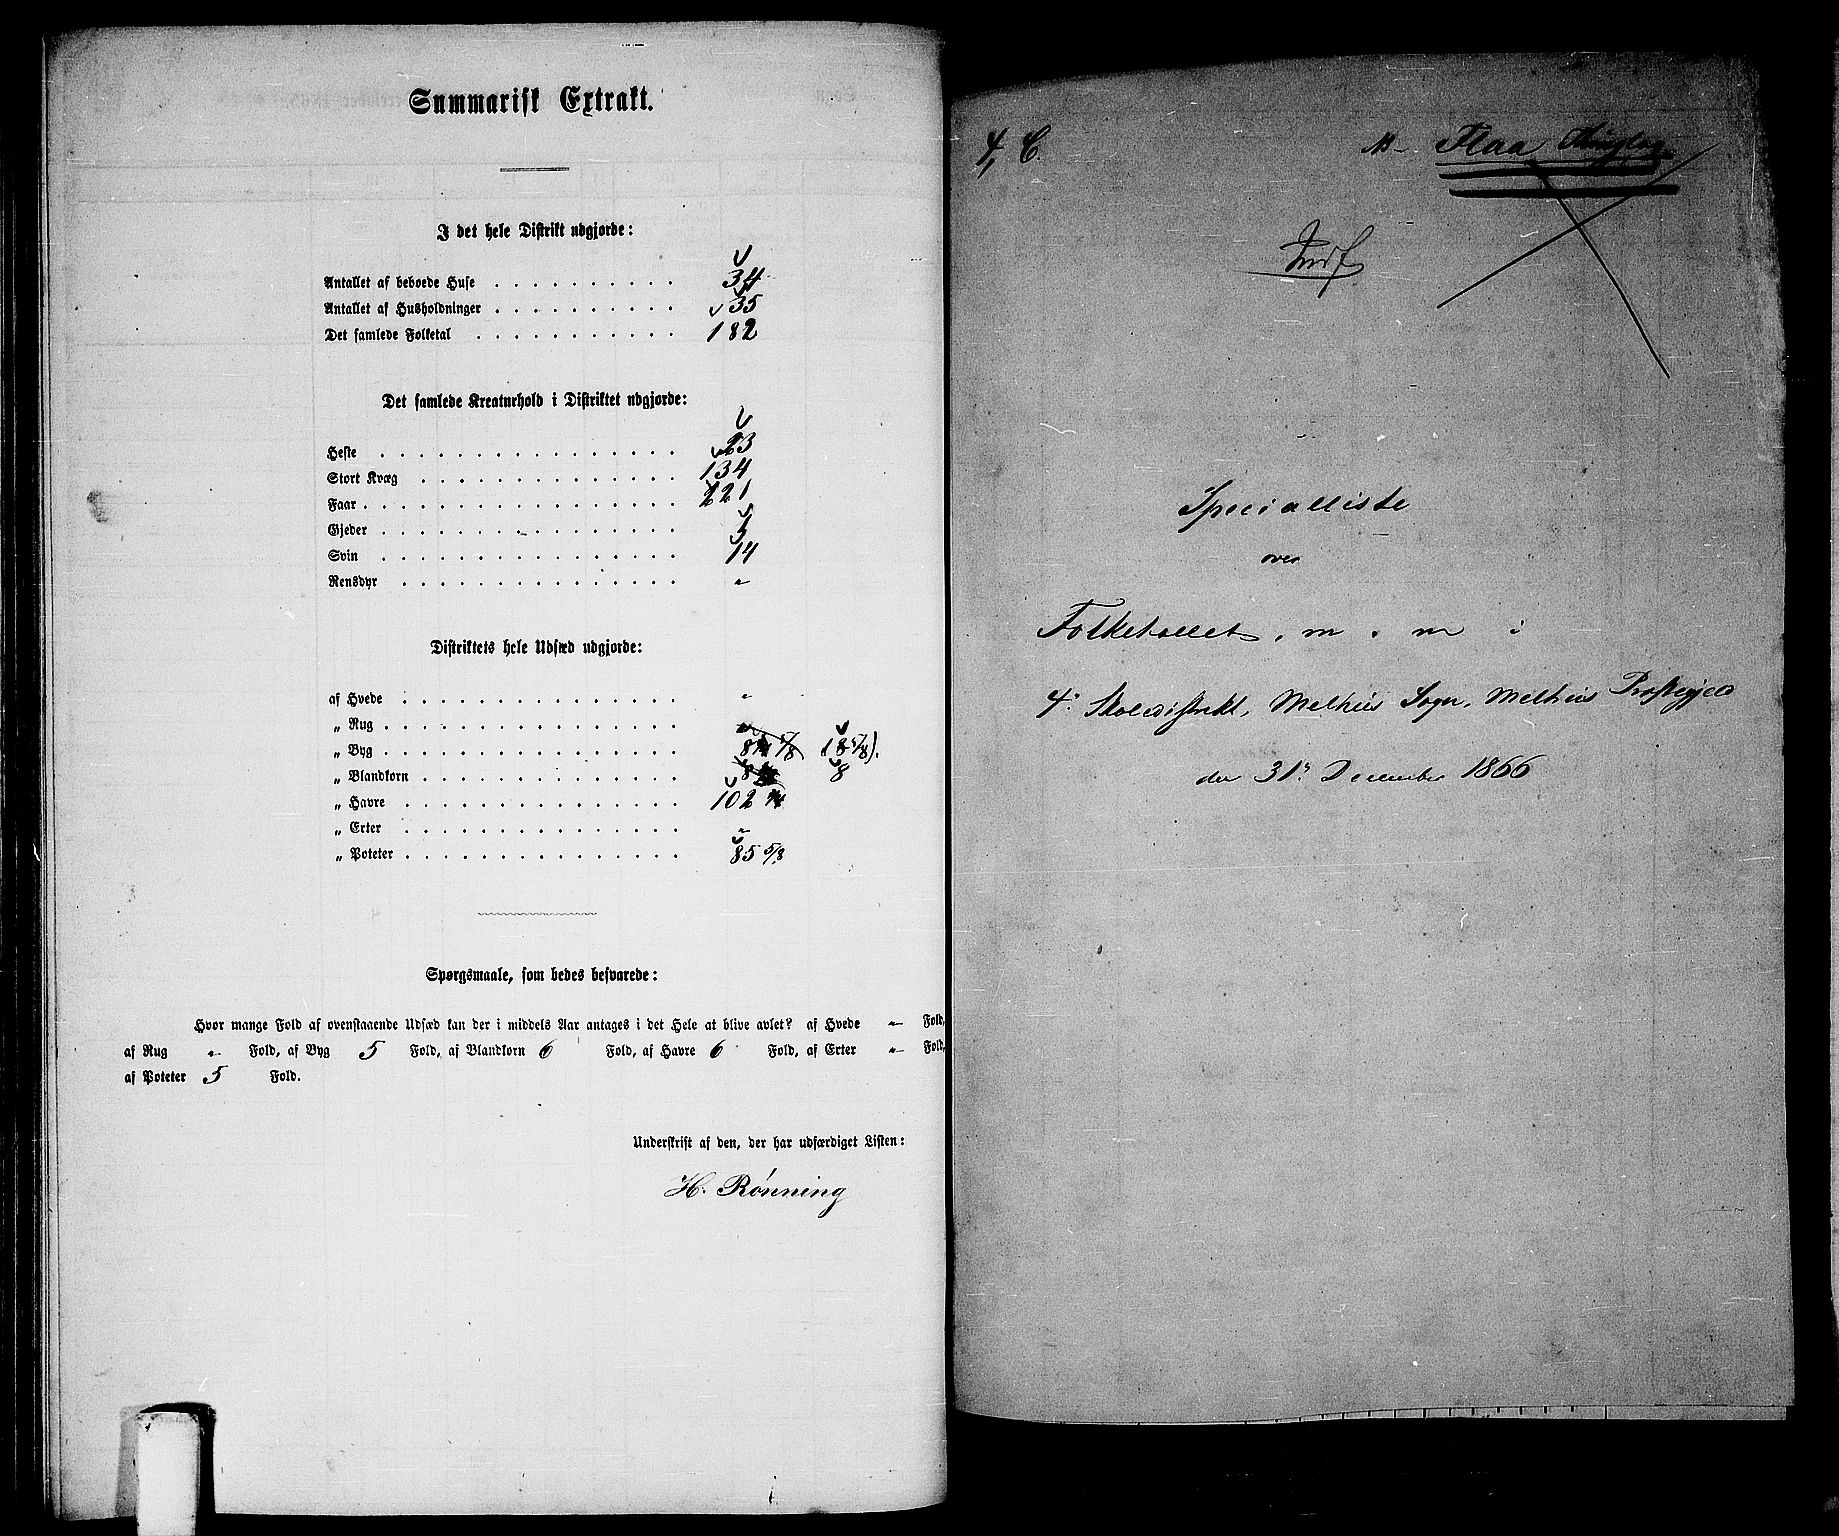 Summarisk Extrakt.
I det hele Distrikt udgjorde:
Antallet af beboede Huse 34
Antallet af Husholdninger 35
Det samlede Folketal 182
Det samlede Kreaturhold i Distriktet udgjorde:
Heste 23
Stort Kvæg 134
Faar 221
Gjeder
Svin 14
Rensdyr "
Distriktets hele Udsæd udgjorde:
af Hvede "
„ Rug "
„ Byg (8 5/8).
„ Blandkorn 8
„ Havre 102
„ Erter "
„ Poteter 85 5/8
Spørgsmaale, som bedes besvarede:
Hvor mange Fold af ovenstaaende Udsæd kan der i middels Aar antages i det Hele at blive avlet? af Hvede " Fold,
af Rug " Fold, af Byg 5 Fold, af Blandkorn 6 Fold, af Havre 6 Fold, af Erter " Fold,
af Poteter 5 Fold.
Underskrift af den, der har udfærdiget Listen:
H. Rønning
4, C.
Flaa Thinglag
Specialliste
over
Folketallet, m. m i
4. Skoledistrikt, Melhus Sogn, Melhus Præstegjeld
den 31. December 1866